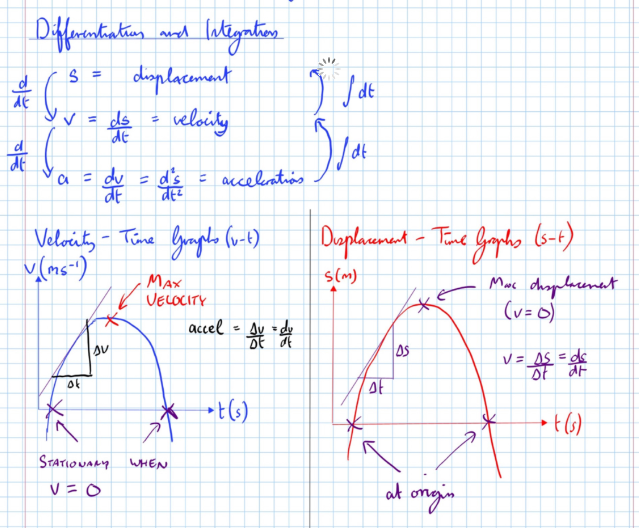 Differentiation and Integration
d/dt s = displacement ∫dt
v = ds/dt = velocity
d/dt ∫dt
a = dv/dt = d²s/dt² = acceleration
Velocity - Time Graphs (v-t)
V(ms⁻¹)
MAX
VELOCITY
accel = Δv/Δt = dv/dt
Δv
Δt
t(s)
STATIONARY WHEN
V = 0
Displacement - Time Graphs (s-t)
s(m)
Max displacement
(v=0)
v = Δs/Δt = ds/dt
Δs
Δt
t(s)
at origin